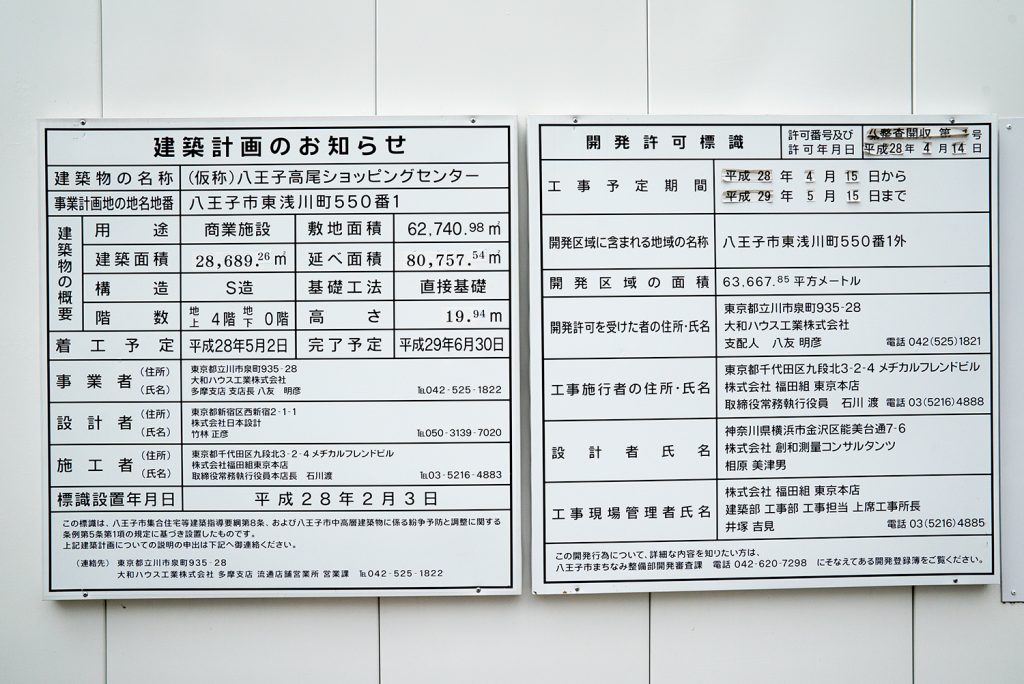 建築計画のお知らせ
建築物の名称 (仮称)八王子高尾ショッピングセンター
事業計画地の地名地番 八王子市東浅川町550番1
建築物の概要
用途 商業施設 敷地面積 62,740.98㎡
建築面積 28,689.26㎡ 延べ面積 80,757.54㎡
構造 S造 基礎工法 直接基礎
階数 地上 4階 地下 0階 高さ 19.94m
着工予定 平成28年5月2日 完了予定 平成29年6月30日
事業者 (住所)(氏名)
東京都立川市泉町935-28
大和ハウス工業株式会社
多摩支店 支店長 八友 明彦 ℡042-525-1822
設計者 (住所)(氏名)
東京都新宿区西新宿2-1-1
株式会社日本設計
竹林 正彦 ℡050-3139-7020
施工者 (住所)(氏名)
東京都千代田区九段北3-2-4 メヂカルフレンドビル
株式会社福田組東京本店
取締役常務執行役員本店長 石川渡 ℡03-5216-4883
標識設置年月日 平成28年2月3日
この標識は、八王子市集合住宅等建築指導要綱第8条、および八王子市中高層建築物に係る紛争予防と調整に関する
条例第5条第1項の規定に基づき設置したものです。
上記建築計画についての説明の申出は下記へ御連絡ください。
(連絡先) 東京都立川市泉町935-28
大和ハウス工業株式会社 多摩支店 流通店舗営業所 営業課 ℡042-525-1822
開発許可標識
許可番号及び 許可年月日
整査開収 第 号
平成28年 4月14日
工事予定期間
平成 28 年 4 月 15 日から
平成 29 年 5 月 15 日まで
開発区域に含まれる地域の名称 八王子市東浅川町550番1外
開発区域の面積 63,667.85平方メートル
開発許可を受けた者の住所・氏名
東京都立川市泉町935-28
大和ハウス工業株式会社
支配人 八友 明彦 電話 042(525)1821
工事施行者の住所・氏名
東京都千代田区九段北3-2-4 メヂカルフレンドビル
株式会社 福田組 東京本店
取締役常務執行役員 石川 渡 電話 03(5216)4888
設計者氏名
神奈川県横浜市金沢区能美台通7-6
株式会社 創和測量コンサルタンツ
相原 美津男
工事現場管理者氏名
株式会社 福田組 東京本店
建築部 工事部 工事担当 上席工事所長
井塚 吉見 電話 03(5216)4885
この開発行為について、詳細な内容を知りたい方は、
八王子市まちなみ整備部開発審査課 電話 042-620-7298 にそなえてある開発登録簿をご覧ください。